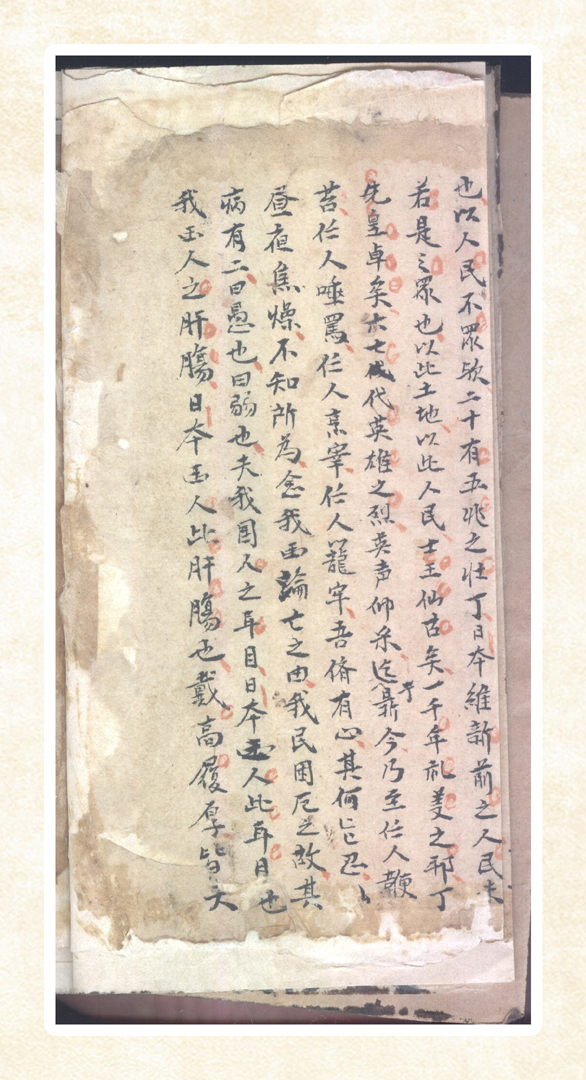 也以人民不眾欤二十有五兆之壮丁日本維新前之人民未
若是之眾也以此土地以此人民士王仙古矣一千年礼羙之邦丁
先皇卓矣六七代英雄之烈英声仰乐迄于今乃至任人鞭
苔任人唾罵任人烹宰任人籠牢吾儕有心其何能忍
昼夜焦燥不知所為念我囯論亡之由我民困厄之故其
病有二曰愚也曰弱也夫我囯人之耳目日本囯人此耳目也
我囯人之肝膓日本囯人此肝膓也戴高履厚皆天